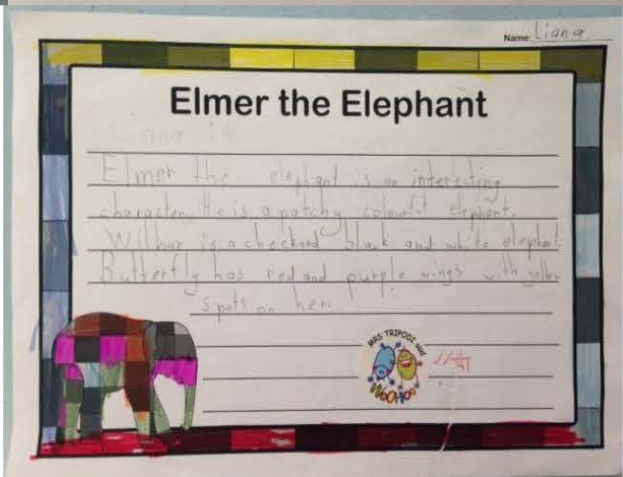 Name: Liana
Elmer the Elephant
Liana
Elmer the elephant is an interesting
character. He is a patchy colourful elephant.
Wilbur is a checkard black and white elephant.
Butterfly has red and purple wings with yellow
spots on her
MRS TRIPODI said
WOOHOO